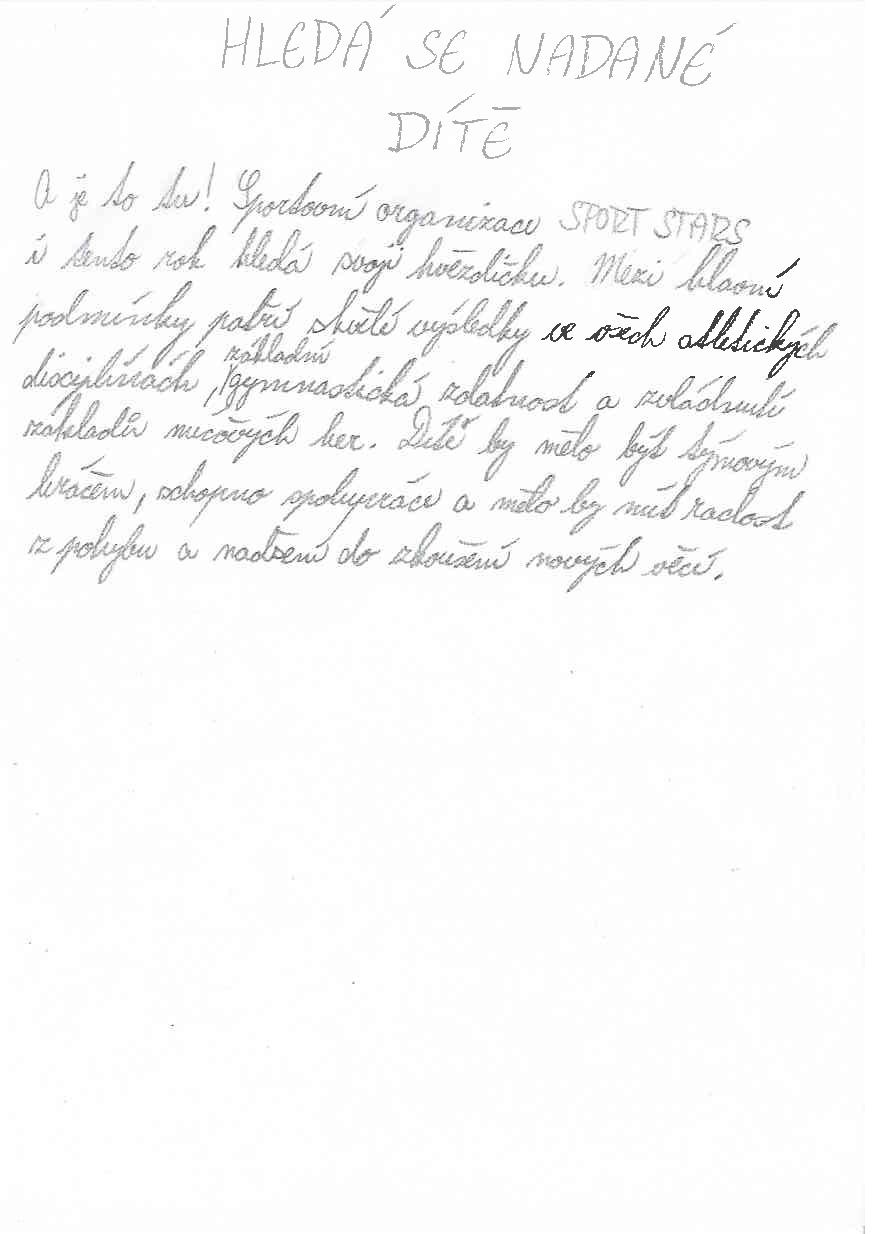 HLEDÁ SE NADANÉ
DÍTĚ
A je to tu! Sportovní organizace SPORT STARS
i tento rok hledá svoji hvězdičku. Mezi hlavní
podmínky patří skvělé výsledky ve všech atletických
disciplínách, základní gymnastická zdatnost a zvládnutí
základů míčových her. Dítě by mělo být týmovým
hráčem, schopno spolupráce a mělo by mít radost
z pohybu a nadšení do zkoušení nových věcí.